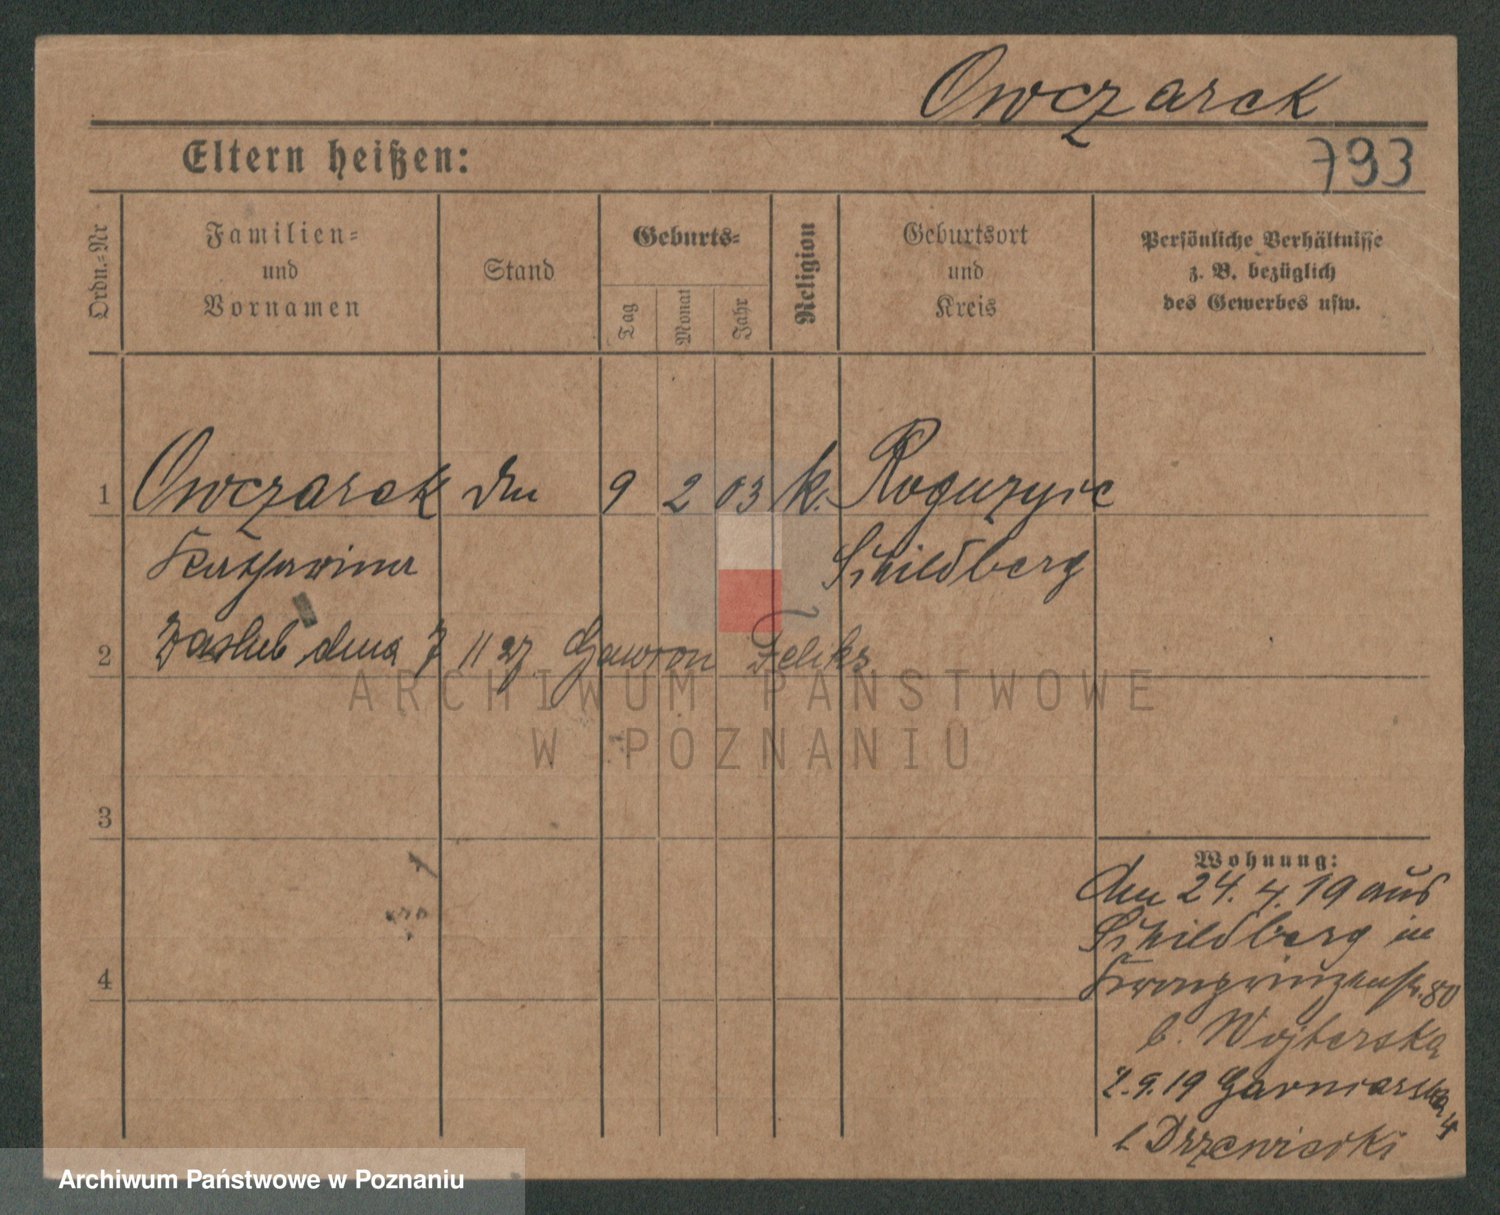 Owczarek
793
Eltern heißen:
Ordn.-Nr
Familien-
und
Vornamen
Stand
Geburts-
Tag
Monat
Jahr
Religion
Geburtsort
und
Kreis
Persönliche Verhältnisse
z. B. bezüglich
des Gewerbes usw.
1 Owczarek 9 2 03 k. Roguzyic
Katharina Schildberg
2 Zaslub dma 7 11 27 Gawron Feliks
ARCHIWUM PAŃSTWOWE
W POZNANIU
3
Wohnung:
den 24. 4. 19 aus
Schildberg in
4
Kronprinzenstr. 80
b. Wojterska
2.9.19 Garniarska 4
b Drzewiecki
Archiwum Państwowe w Poznaniu